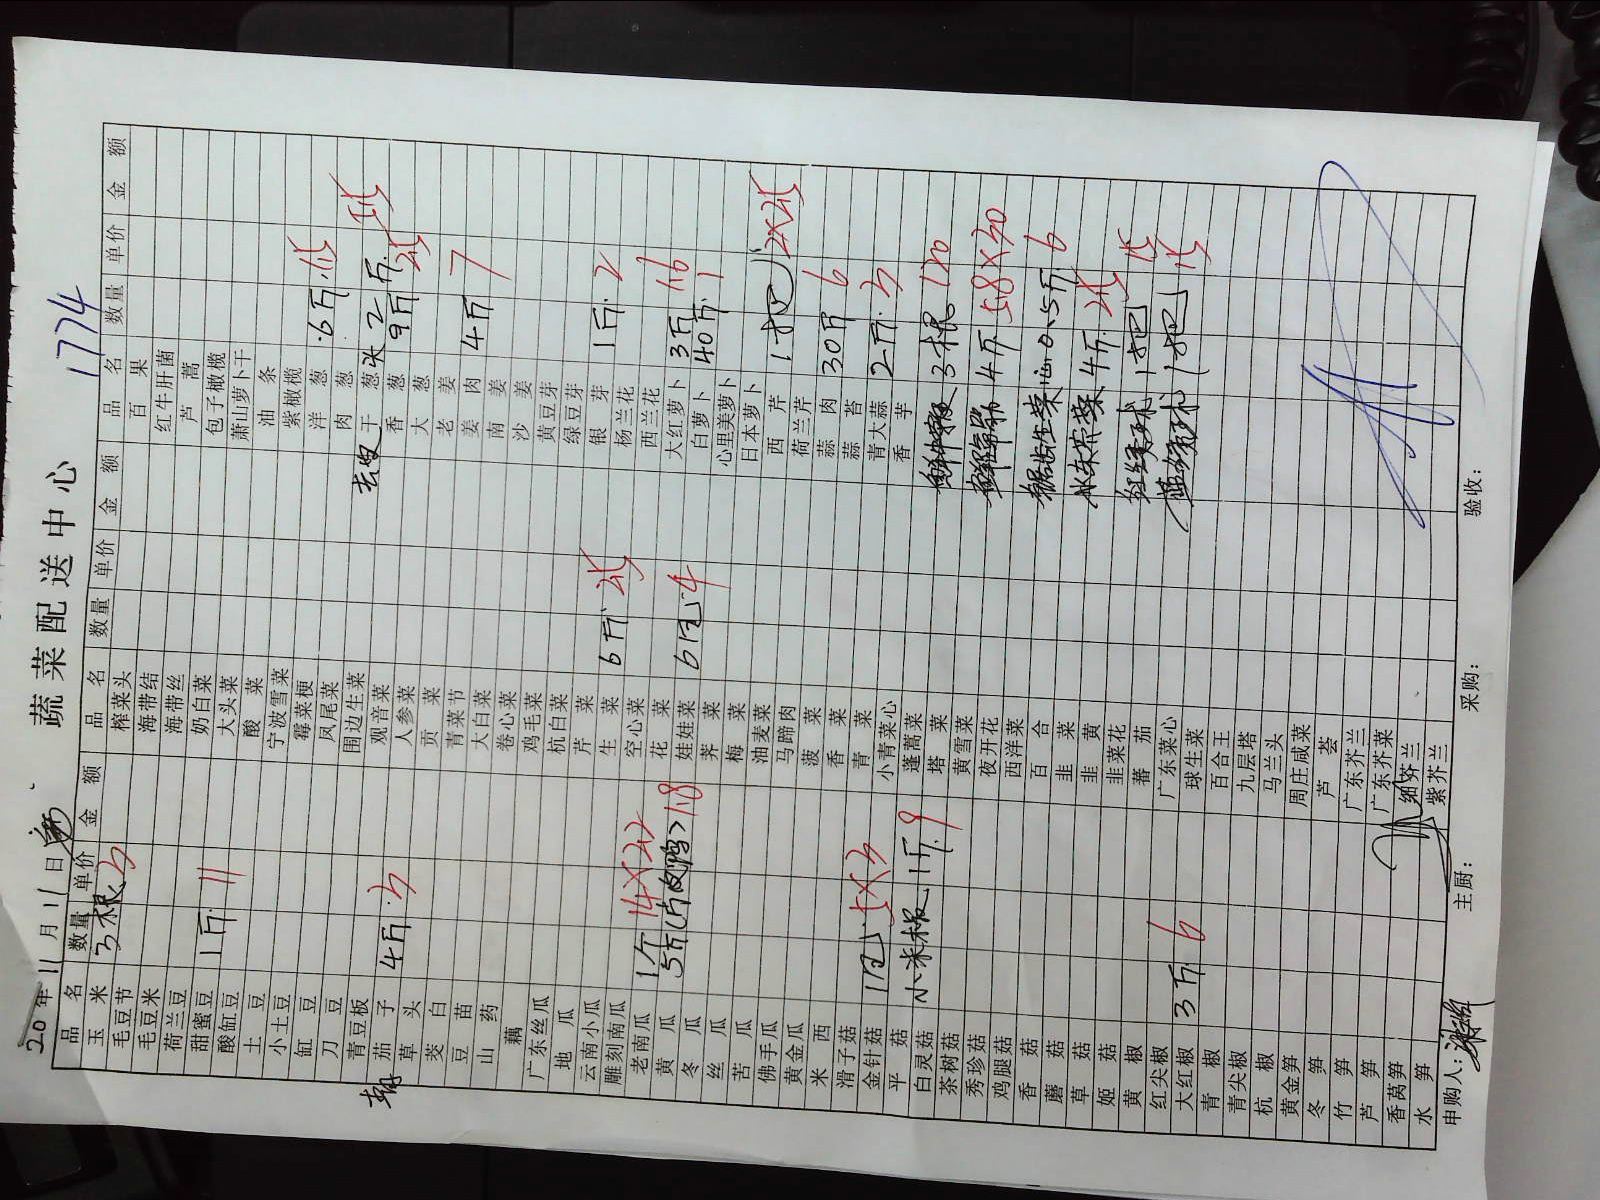 蔬菜配送中心
1774
2020年11月11日
品名 数量 单价 金额 品名 数量 单价 金额 品名 数量 单价 金额
玉米 3根 3 榨菜头 百果
毛豆节 海带结 红牛肝菌
毛豆米 海带丝 芦蒿
荷兰豆 奶白菜 包子橄榄
甜蜜豆 1斤 11 大头菜 萧山萝卜干
酸缸豆 酸菜 油条
土豆 宁波雪菜 紫橄榄
小土豆 霉菜梗 洋葱 6斤
缸豆 凤尾菜 肉葱
刀豆 围边生菜 干葱头 2斤
青豆板 观音菜 香葱 9斤
茄子 4斤 3 人参菜 大葱
草头 贡菜 老姜
茭白 青菜节 姜肉 4斤 7
豆苗 大白菜 南姜
山药 卷心菜 沙姜
藕 鸡毛菜 黄豆芽
广东丝瓜 杭白菜 绿豆芽
地瓜 芹菜 银芽 1斤 2
云南小瓜 生菜 6斤 杨兰花
雕刻南瓜 空心菜 西兰花
老南瓜 1个 14X22 花菜 大红萝卜 3斤 1.6
黄瓜 5斤 1.8 娃娃菜 6包 4 白萝卜 40斤 1
冬瓜 荠菜 心里美萝卜
丝瓜 梅菜 日本萝卜
苦瓜 油麦菜 西芹 1把
佛手瓜 马蹄肉 荷兰芹
黄金瓜 菠菜 蒜肉 30斤 6
米西 香菜 蒜苔
滑子菇 青菜 青大蒜 2斤 3
金针菇 1包 5X3 小青菜心 香芋
平菇 蓬蒿菜 3根 120
白灵菇 小米椒 1斤 9 塔菜
茶树菇 黄雪菜 4斤 58X30
秀珍菇 夜开花
鸡腿菇 西洋菜 锯齿生菜 0.5斤 6
香菇 百合
磨菇 韭菜 4斤
草菇 韭黄
姬菇 韭菜花 红绣球 1把
黄椒 蕃茄
红尖椒 广东菜心 蓝绣球 1把
大红椒 3斤 6 球生菜
青椒 百合王
青尖椒 九层塔
杭椒 马兰头
黄金笋 周庄咸菜
冬笋 芦荟
竹笋 广东芥兰
芦笋 广东芥菜
香莴笋 细芥兰
水笋 紫芥兰
申购人: 主厨: 采购: 验收: